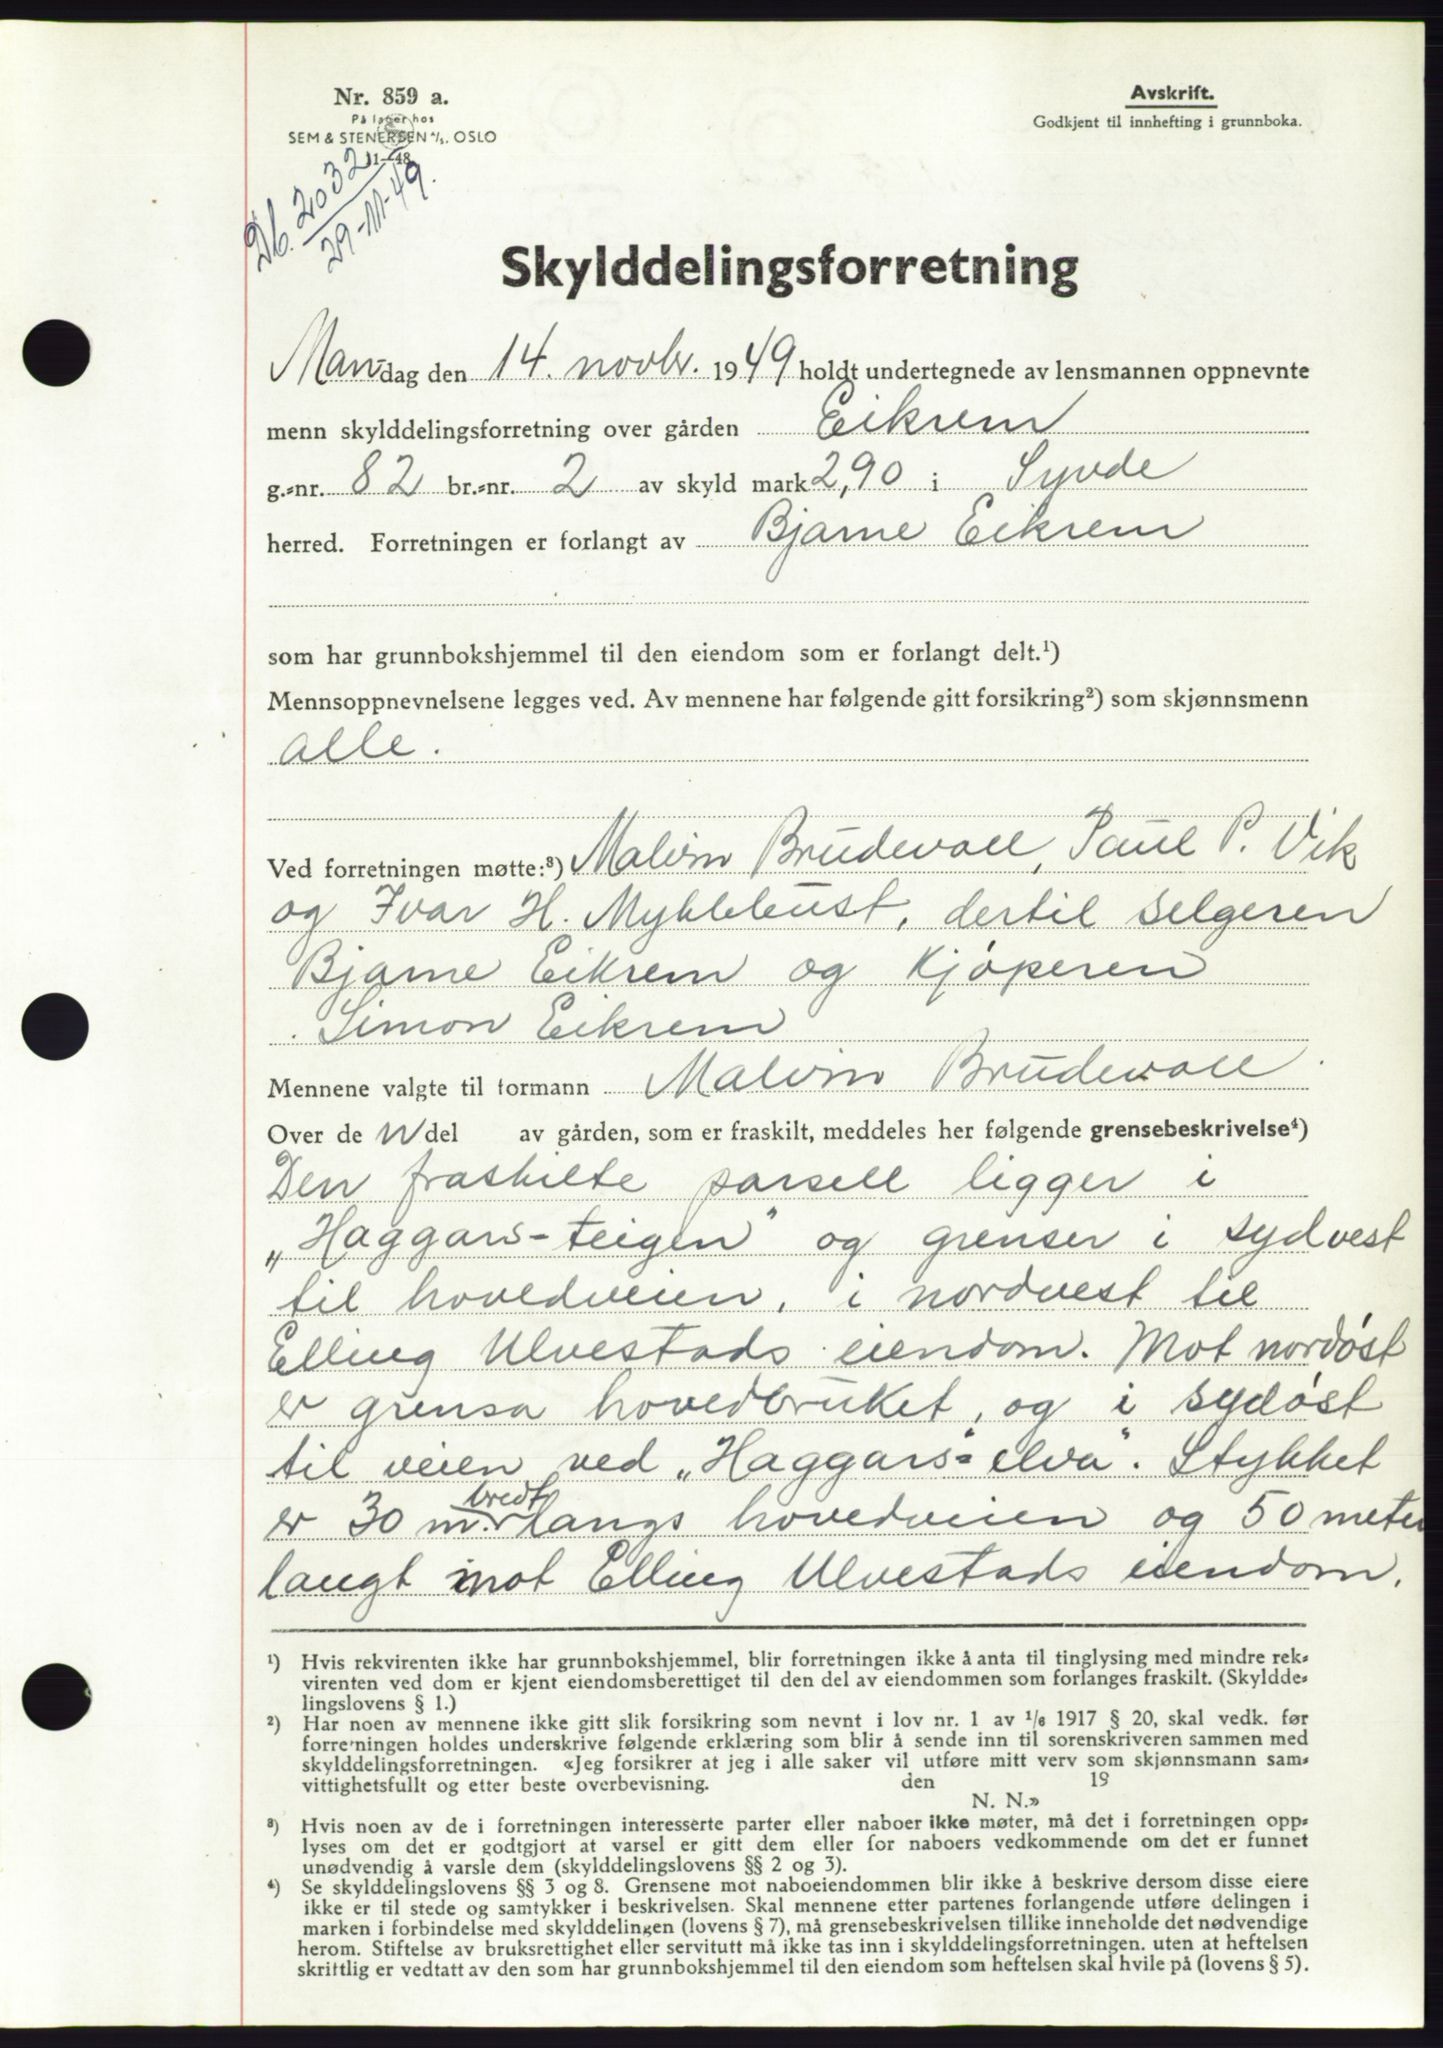 Nr. 859 a.
På lager hos
SEM & STENERSEN A/S. OSLO
11-48.
Db. 2032
29-11-49.
Avskrift.
Godkjent til innhefting i grunnboka.
Skylddelingsforretning
Mandag den 14. novbr. 1949 holdt undertegnede av lensmannen oppnevnte
menn skylddelingsforretning over gården Eikrem
g.-nr. 82 br.-nr. 2 av skyld mark 2,90 i Syvde
herred. Forretningen er forlangt av Bjarne Eikrem
som har grunnbokshjemmel til den eiendom som er forlangt delt.¹)
Mennsoppnevnelsene legges ved. Av mennene har følgende gitt forsikring²) som skjønnsmenn
alle.
Ved forretningen møtte:³) Malvin Brudevoll, Paul P. Vik
og Ivar H. Myklebust, dertil selgeren
Bjarne Eikrem og kjøperen
Simon Eikrem
Mennene valgte til formann Malvin Brudevoll.
Over de n del av gården, som er fraskilt, meddeles her følgende grensebeskrivelse⁴)
Den fraskilte parsell ligger i
„Haggars-teigen" og grenser i sydvest
til hovedveien, i nordvest til
Elling Ulvestads eiendom. Mot nordøst
er grensa hovedbruket, og i sydøst
til veien ved „Haggars-elva". Stykket
er 30 m. bredt langs hovedveien og 50 meter
langt mot Elling Ulvestads eiendom.
¹) Hvis rekvirenten ikke har grunnbokshjemmel, blir forretningen ikke å anta til tinglysing med mindre rek-
virenten ved dom er kjent eiendomsberettiget til den del av eiendommen som forlanges fraskilt. (Skyldde-
lingslovens § 1.)
²) Har noen av mennene ikke gitt slik forsikring som nevnt i lov nr. 1 av 1/6 1917 § 20, skal vedk. før
forretningen holdes underskrive følgende erklæring som blir å sende inn til sorenskriveren sammen med
skylddelingsforretningen. «Jeg forsikrer at jeg i alle saker vil utføre mitt verv som skjønnsmann sam-
vittighetsfullt og etter beste overbevisning. den 19
N. N.»
³) Hvis noen av de i forretningen interesserte parter eller naboer ikke møter, må det i forretningen opp-
lyses om det er godtgjort at varsel er gitt dem eller for naboers vedkommende om det er funnet
unødvendig å varsle dem (skylddelingslovens §§ 2 og 3).
⁴) Se skylddelingslovens §§ 3 og 8. Grensene mot naboeiendommen blir ikke å beskrive dersom disse eiere
ikke er til stede og samtykker i beskrivelsen. Skal mennene etter partenes forlangende utføre delingen i
marken i forbindelse med skylddelingen (lovens § 7), må grensebeskrivelsen tillike inneholde det nødvendige
herom. Stiftelse av bruksrettighet eller servitutt må ikke tas inn i skylddelingsforretningen, uten at heftelsen
skriftlig er vedtatt av den som har grunnbokshjemmel til den eiendom som heftelsen skal hvile på (lovens § 5).